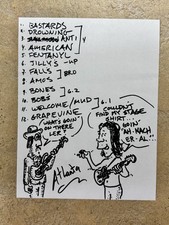 1. BASTARDS
2. DROWNING
3. ANTI
4. AMERICAN
5. FENTANYL
6. JILLY'S -UP
7. FALLS ] BRO
8. AMOS
9. BONES ] 6.2
10. BOBS
11. WELCOME/MUD ] 6.1
12. GRAPEVINE
"WHAT'S GOIN'
ON THERE
LER?"
COULDN'T
FIND MY STAGE
SHIRT...
MIN
AI-NACH
ER-AL
Atlanta